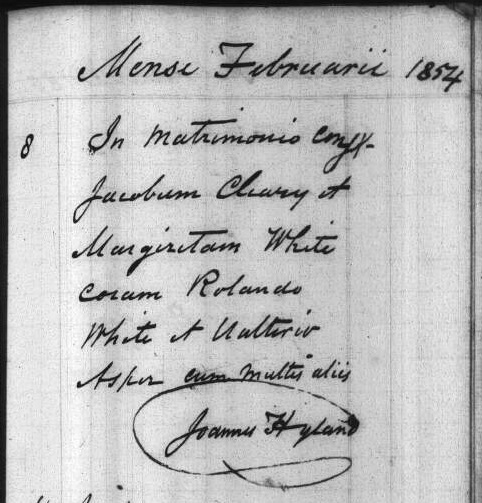 Mense Februarii 1854
8 In Matrimonio Conjx-
Jacobum Cleary et
Margiretam White
coram Rolando
White et Ualterio
Asper cum multis aliis
Joannes Hyland